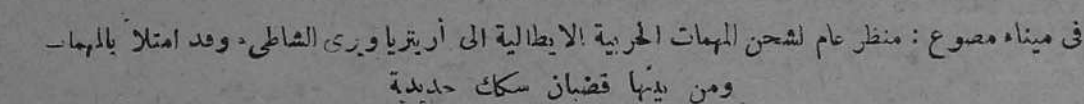 فى ميناء مصوع : منظر عام لشحن المهمات الحربية الايطالية الى أريتريا ويرى الشاطىء وقد امتلأ بالمهمات
ومن بينها قضبان سكك حديدية